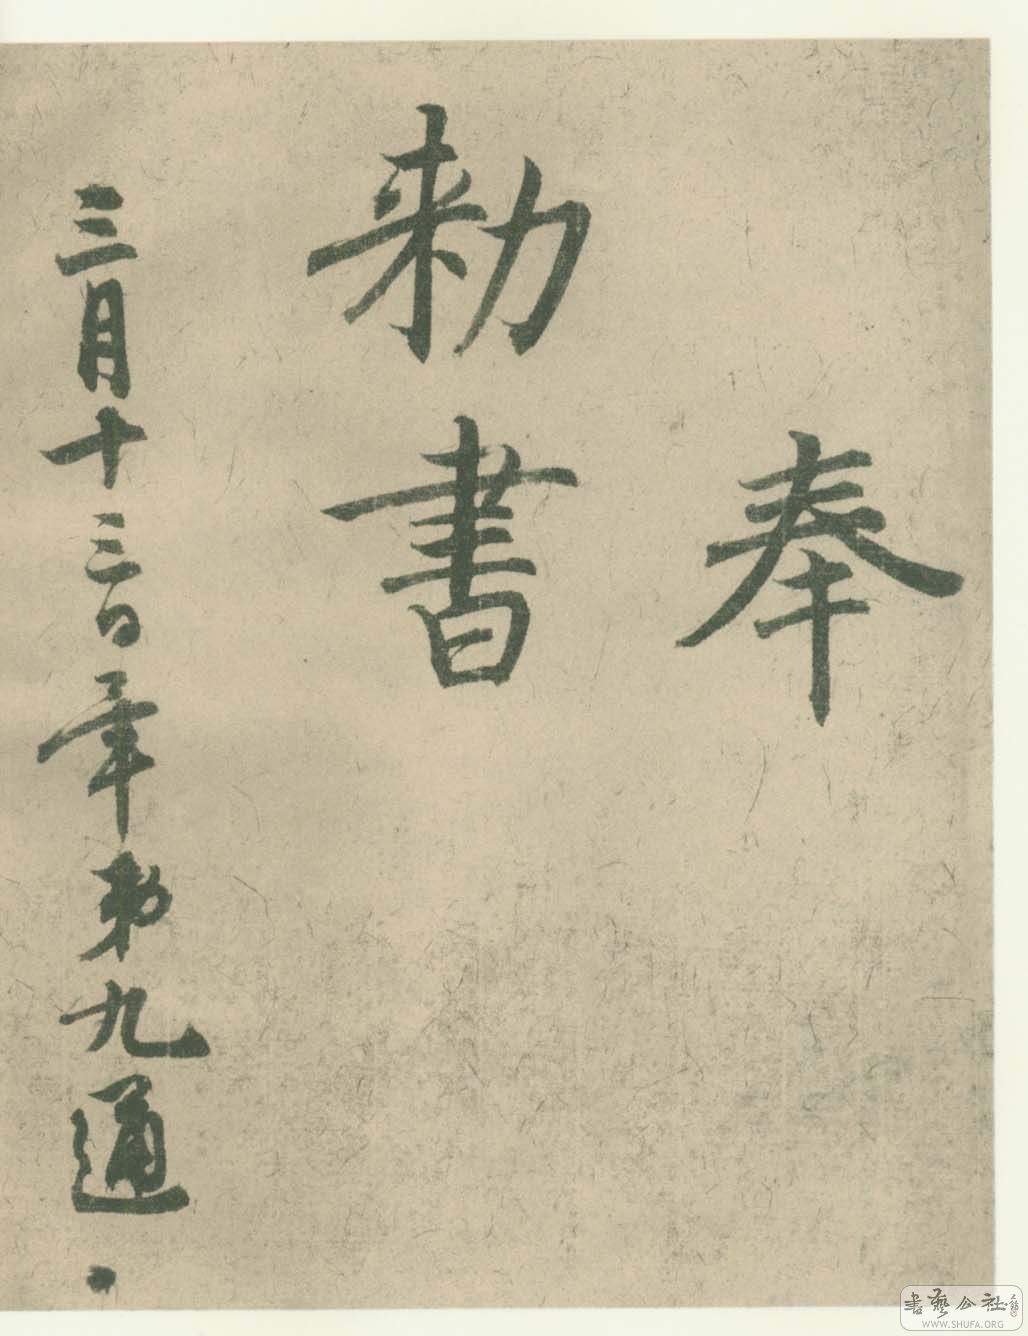 奉
勅書
三月十三日奉勅九通
書藝公社
WWW.SHUFA.ORG